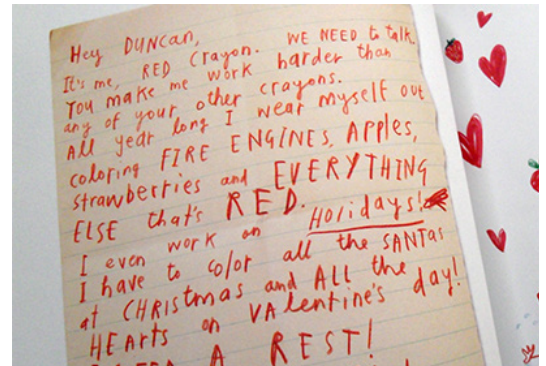 Hey DUNCAN,
It's me, RED Crayon. WE NEED to talk.
You make me work harder than
any of your other crayons.
All year long I wear myself out
coloring FIRE ENGINES, Apples,
strawberries and EVERYTHING
ELSE that's RED.
I even work on Holidays!
I have to color all the SANTAs
at CHRistmas and ALL the
HEArts on VAlentine's day!
A REST!